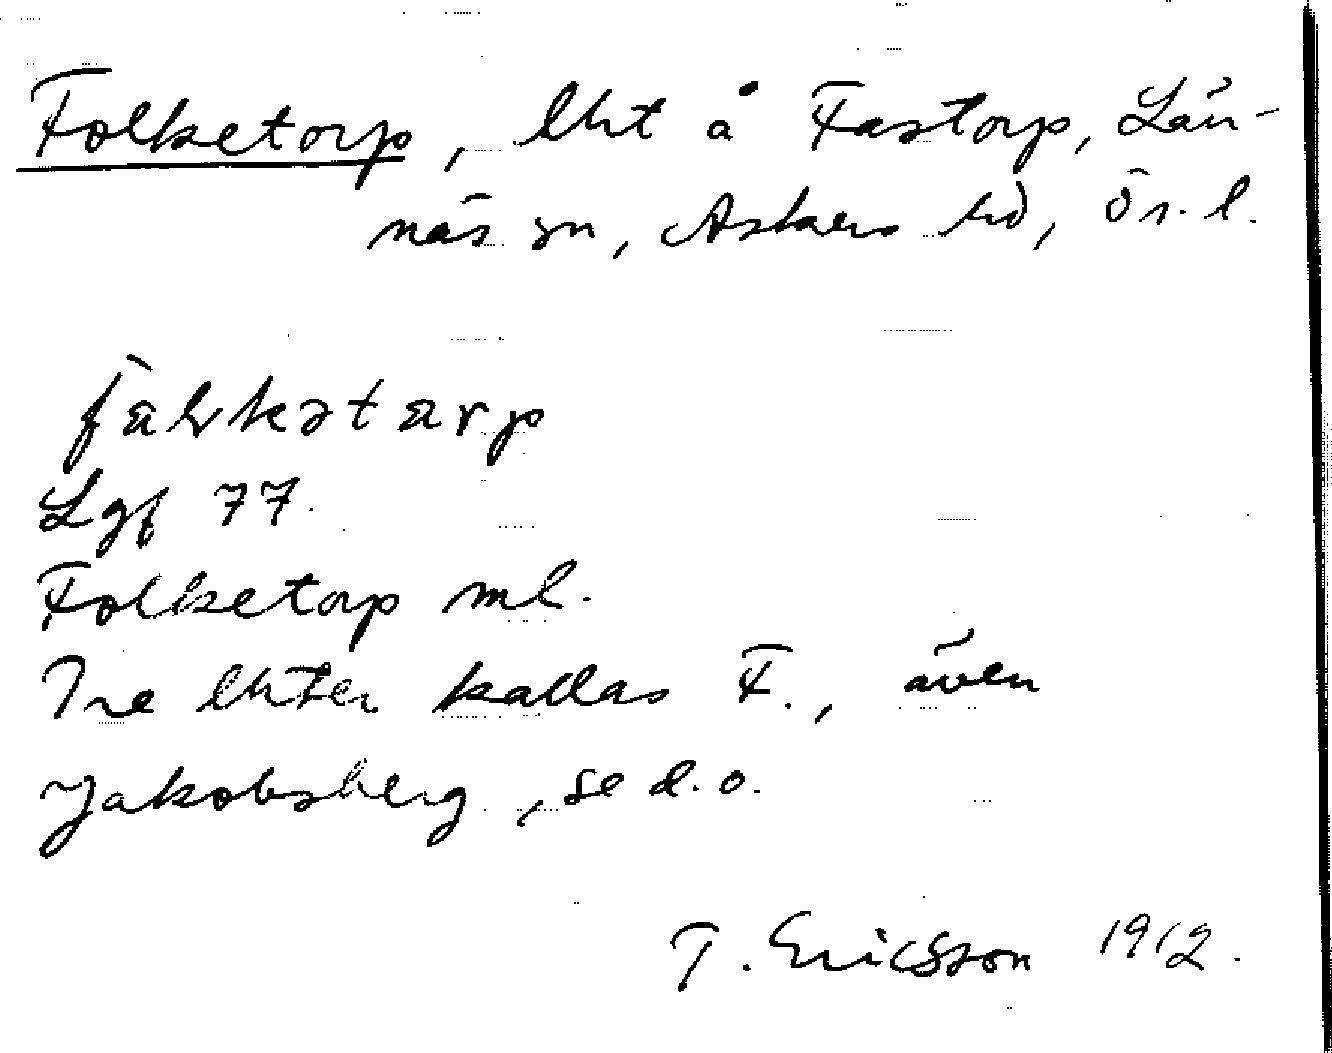 Folketorp, lht å Fastorp, Län-
näs sn, Askers hd, Ör. l.
Lgf 77.
Folketorp ml.
Tre lhter kallas F., även
Jakobsberg, se d.o.
T. Ericsson 1912.